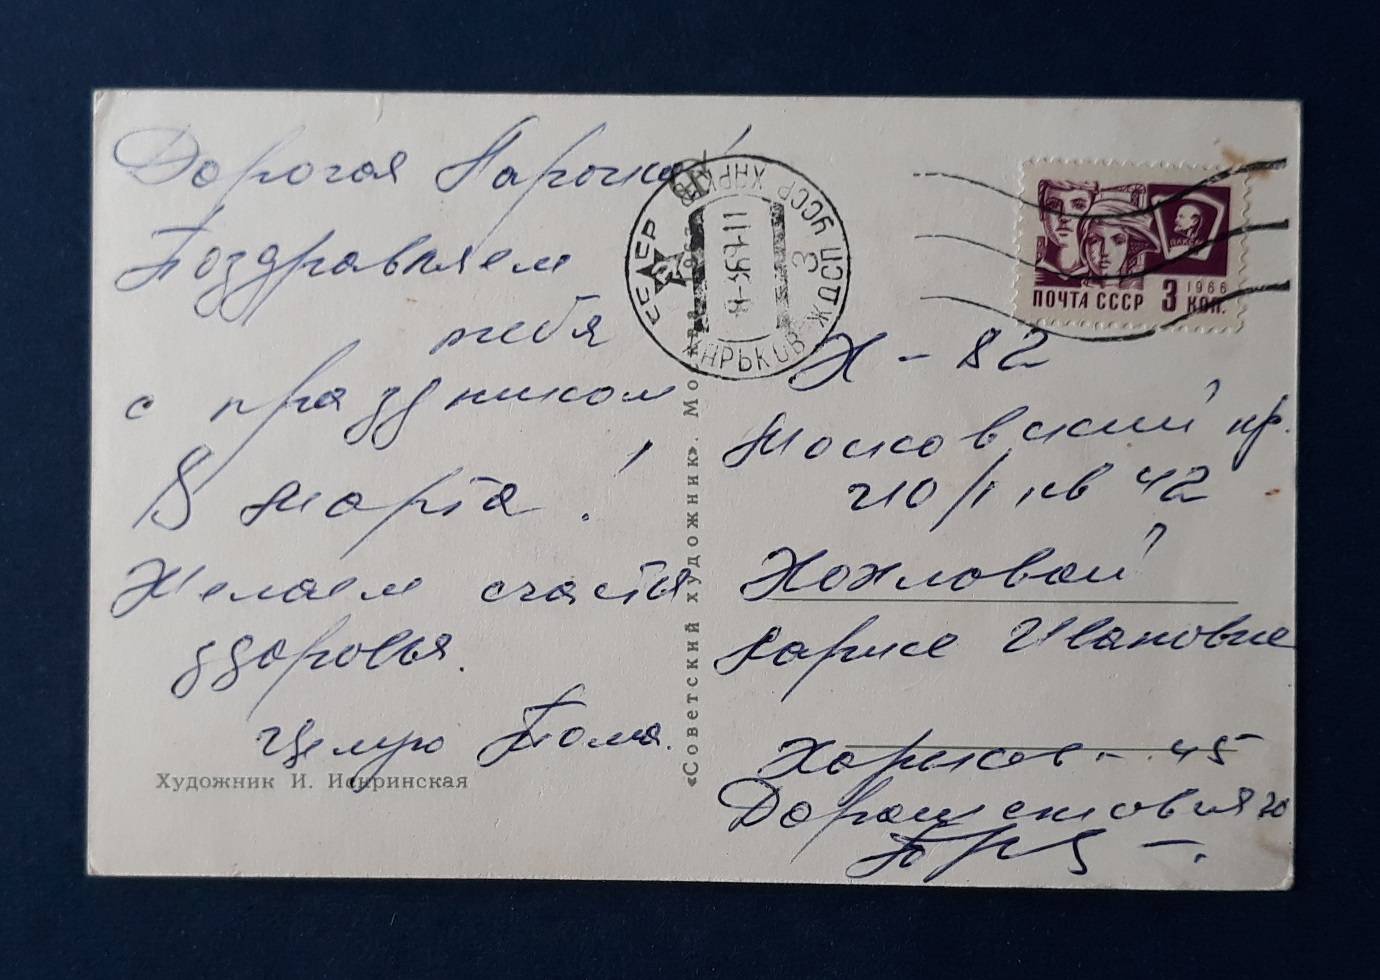 Дорогая Ларочка!
Поздравляем
тебя
с праздником
8 марта!
Желаем счастья
здоровья.
Целую Тома.
Художник И. Искринская
«Советский художник». Москва
СССР
ХАРЬКОВ УССР
ХАРЬКОВ ЖДП
3
ПОЧТА СССР 3 КОП.
1966
ВЛКСМ
Х-82
Московский пр.
210/1 кв 42
Хохловой
Ларисе Ивановне
Харьков - 45